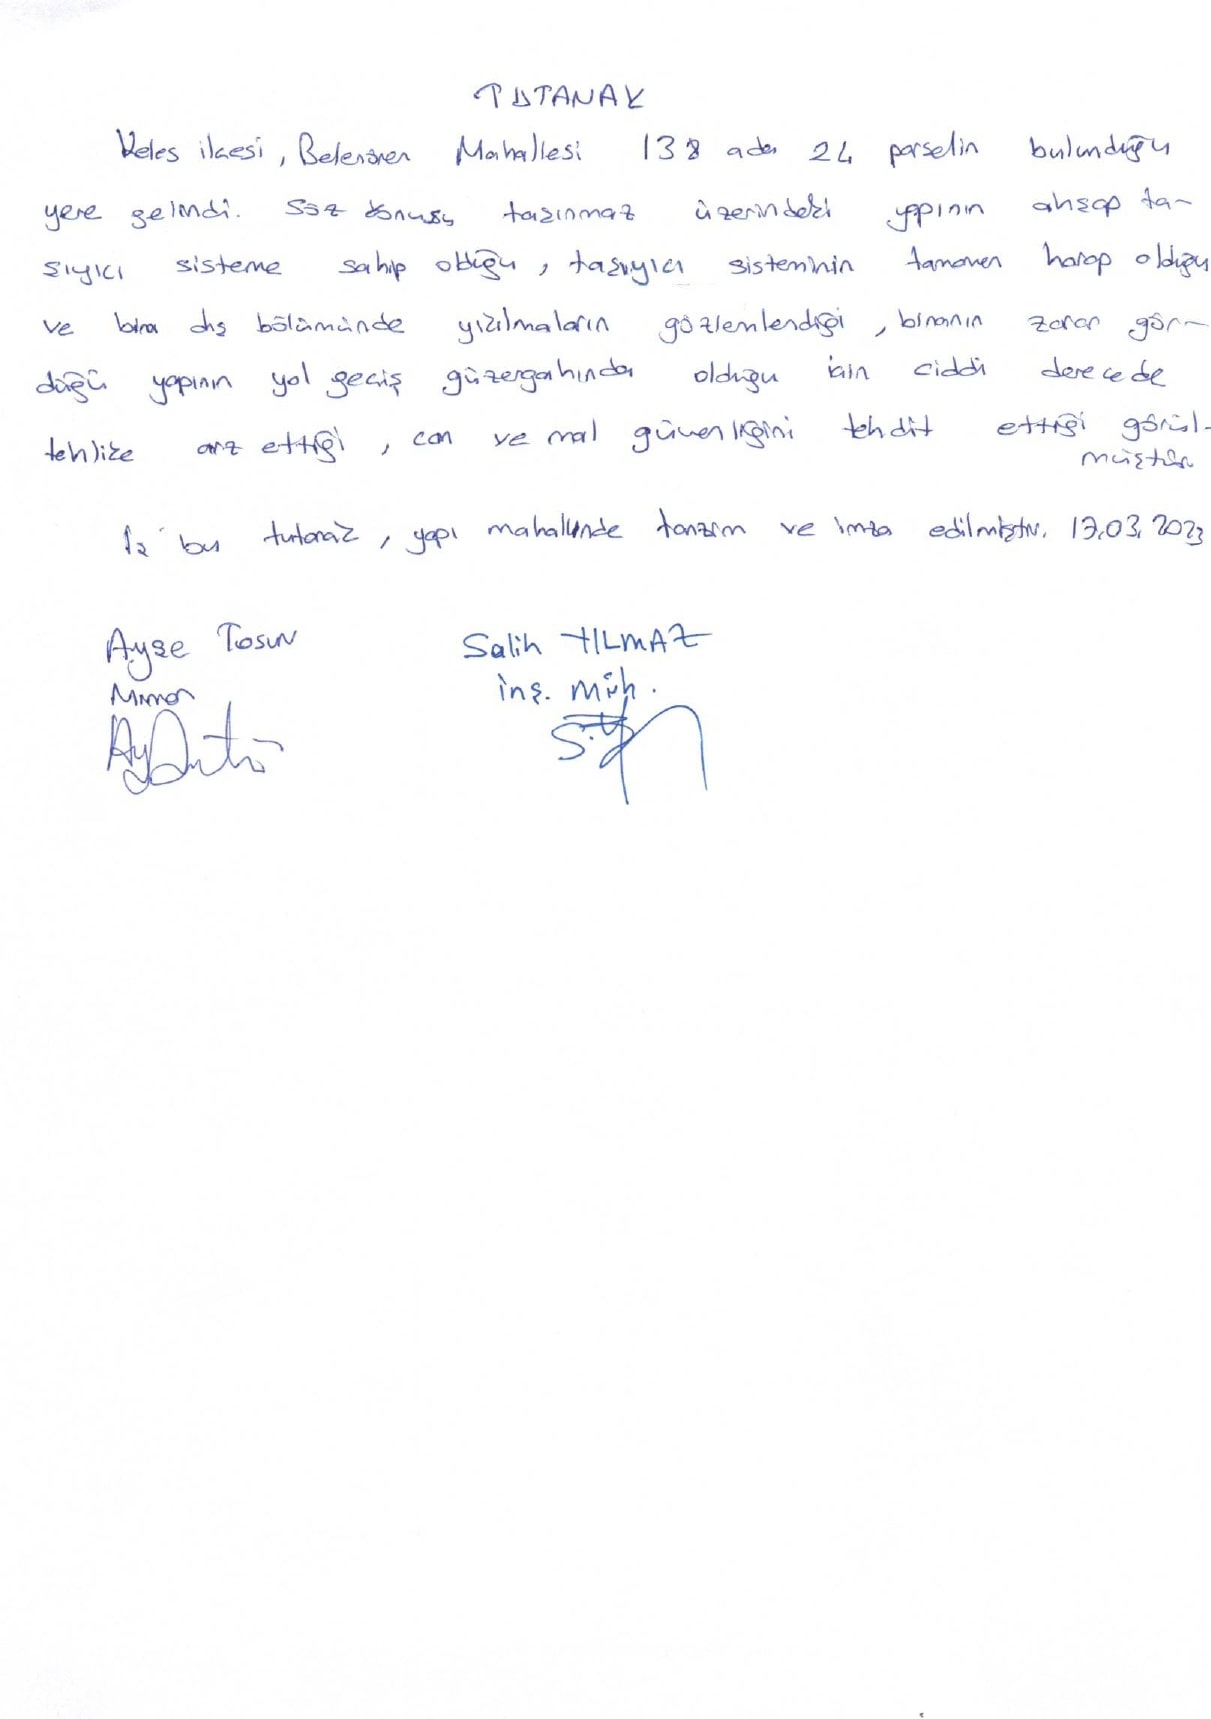 TUTANAK
Keles ilçesi, Belenören Mahallesi 138 ada 24 parselin bulunduğu
yere gelindi. Söz konusu taşınmaz üzerindeki yapının ahşap ta-
şıyıcı sisteme sahip olduğu, taşıyıcı sisteminin tamamen harap olduğu
ve bina dış bölümünde yıkılmaların gözlemlendiği, binanın zarar gör-
düğü yapının yol geçiş güzergahında olduğu için ciddi derecede
tehlike arz ettiği, can ve mal güvenliğini tehdit ettiği görül-
müştür
İş bu tutanak, yapı mahallinde tanzim ve imza edilmiştir. 17.03.2023
Ayşe Tosun Salih YILMAZ
Mimar inş. müh.